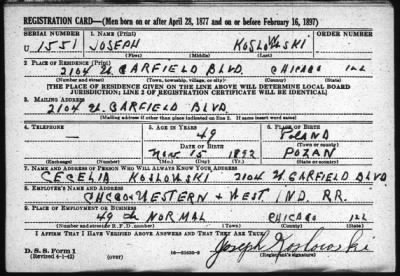 REGISTRATION CARD—(Men born on or after April 28, 1877 and on or before February 16, 1897)
SERIAL NUMBER 1. NAME (Print) ORDER NUMBER
U 1551 JOSEPH KOSLOWSKI
(First) (Middle) (Last)
2. PLACE OF RESIDENCE (Print)
2104 W. GARFIELD BLVD. CHICAGO ILL
(Number and street) (Town, township, village, or city) (County) (State)
[THE PLACE OF RESIDENCE GIVEN ON THE LINE ABOVE WILL DETERMINE LOCAL BOARD
JURISDICTION; LINE 2 OF REGISTRATION CERTIFICATE WILL BE IDENTICAL]
3. MAILING ADDRESS
2104 W. GARFIELD BLVD.
[Mailing address if other than place indicated on line 2. If same insert word same]
4. TELEPHONE 5. AGE IN YEARS 6. PLACE OF BIRTH
— 49 POLAND
DATE OF BIRTH (Town or county)
Nov. 15 1892 POZAN
(Exchange) (Number) (Mo.) (Day) (Yr.) (State or country)
7. NAME AND ADDRESS OF PERSON WHO WILL ALWAYS KNOW YOUR ADDRESS
CECELIA KOSLOWSKI 2104 W. GARFIELD BLVD
8. EMPLOYER'S NAME AND ADDRESS
CHCGO WESTERN + WEST IND. RR.
9. PLACE OF EMPLOYMENT OR BUSINESS
49 NORMAL CHICAGO ILL
(Number and street or R. F. D. number) (Town) (County) (State)
I AFFIRM THAT I HAVE VERIFIED ABOVE ANSWERS AND THAT THEY ARE TRUE.
D. S. S. Form 1
(Revised 4-1-42) (over) Joseph Koslowski
(Registrant's signature)